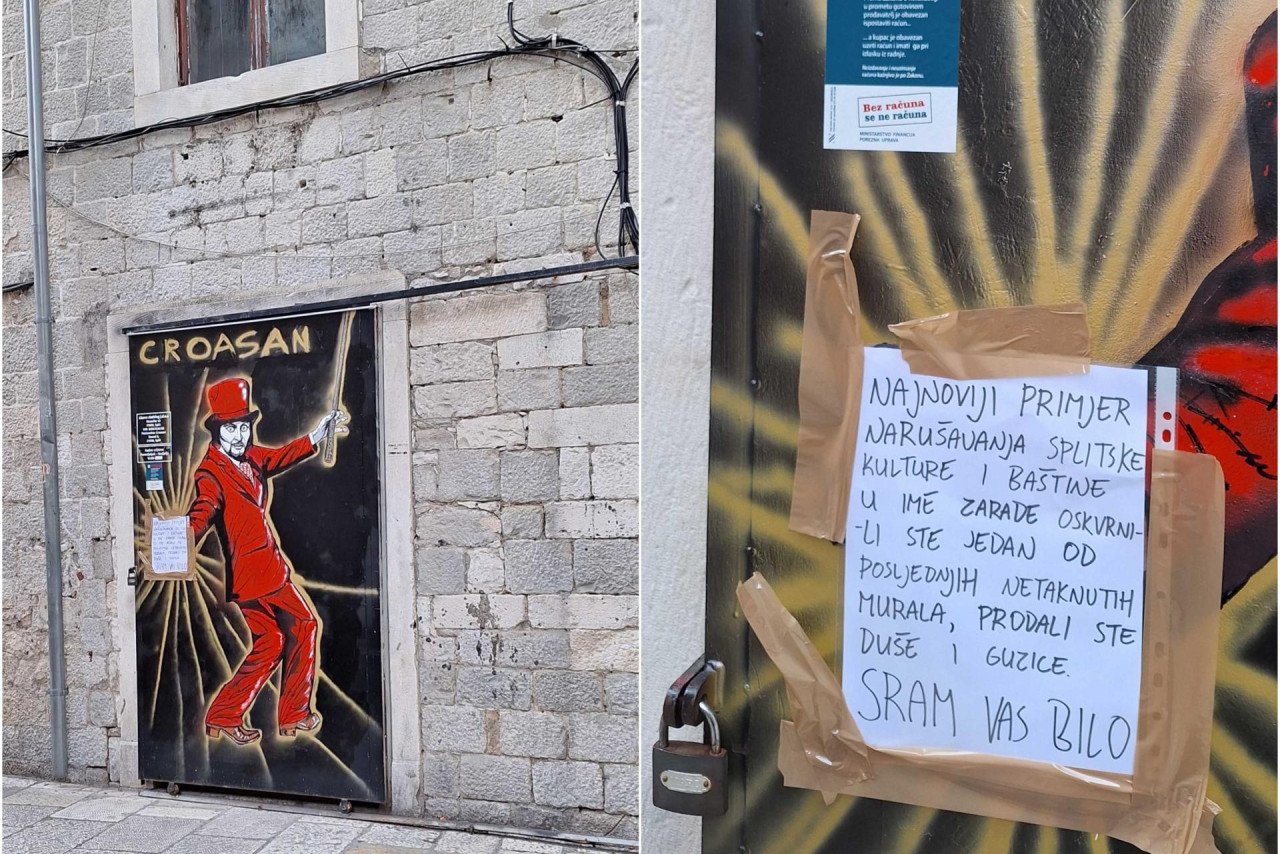 CROASAN
u prometu gotovinom
prodavatelj je obavezan
ispostaviti račun...
... a kupac je obavezan
uzeti račun i imati ga pri
izlasku iz radnje.
Neizdavanje i neuzimanje
računa kažnjivo je po Zakonu.
Bez računa
se ne računa
MINISTARSTVO FINANCIJA
POREZNA UPRAVA
NAJNOVIJI PRIMJER
NARUŠAVANJA SPLITSKE
KULTURE I BAŠTINE
U IME ZARADE OSKVRNI-
-LI STE JEDAN OD
POSLJEDNJIH NETAKNUTIH
MURALA, PRODALI STE
DUŠE I GUZICE.
SRAM VAS BILO